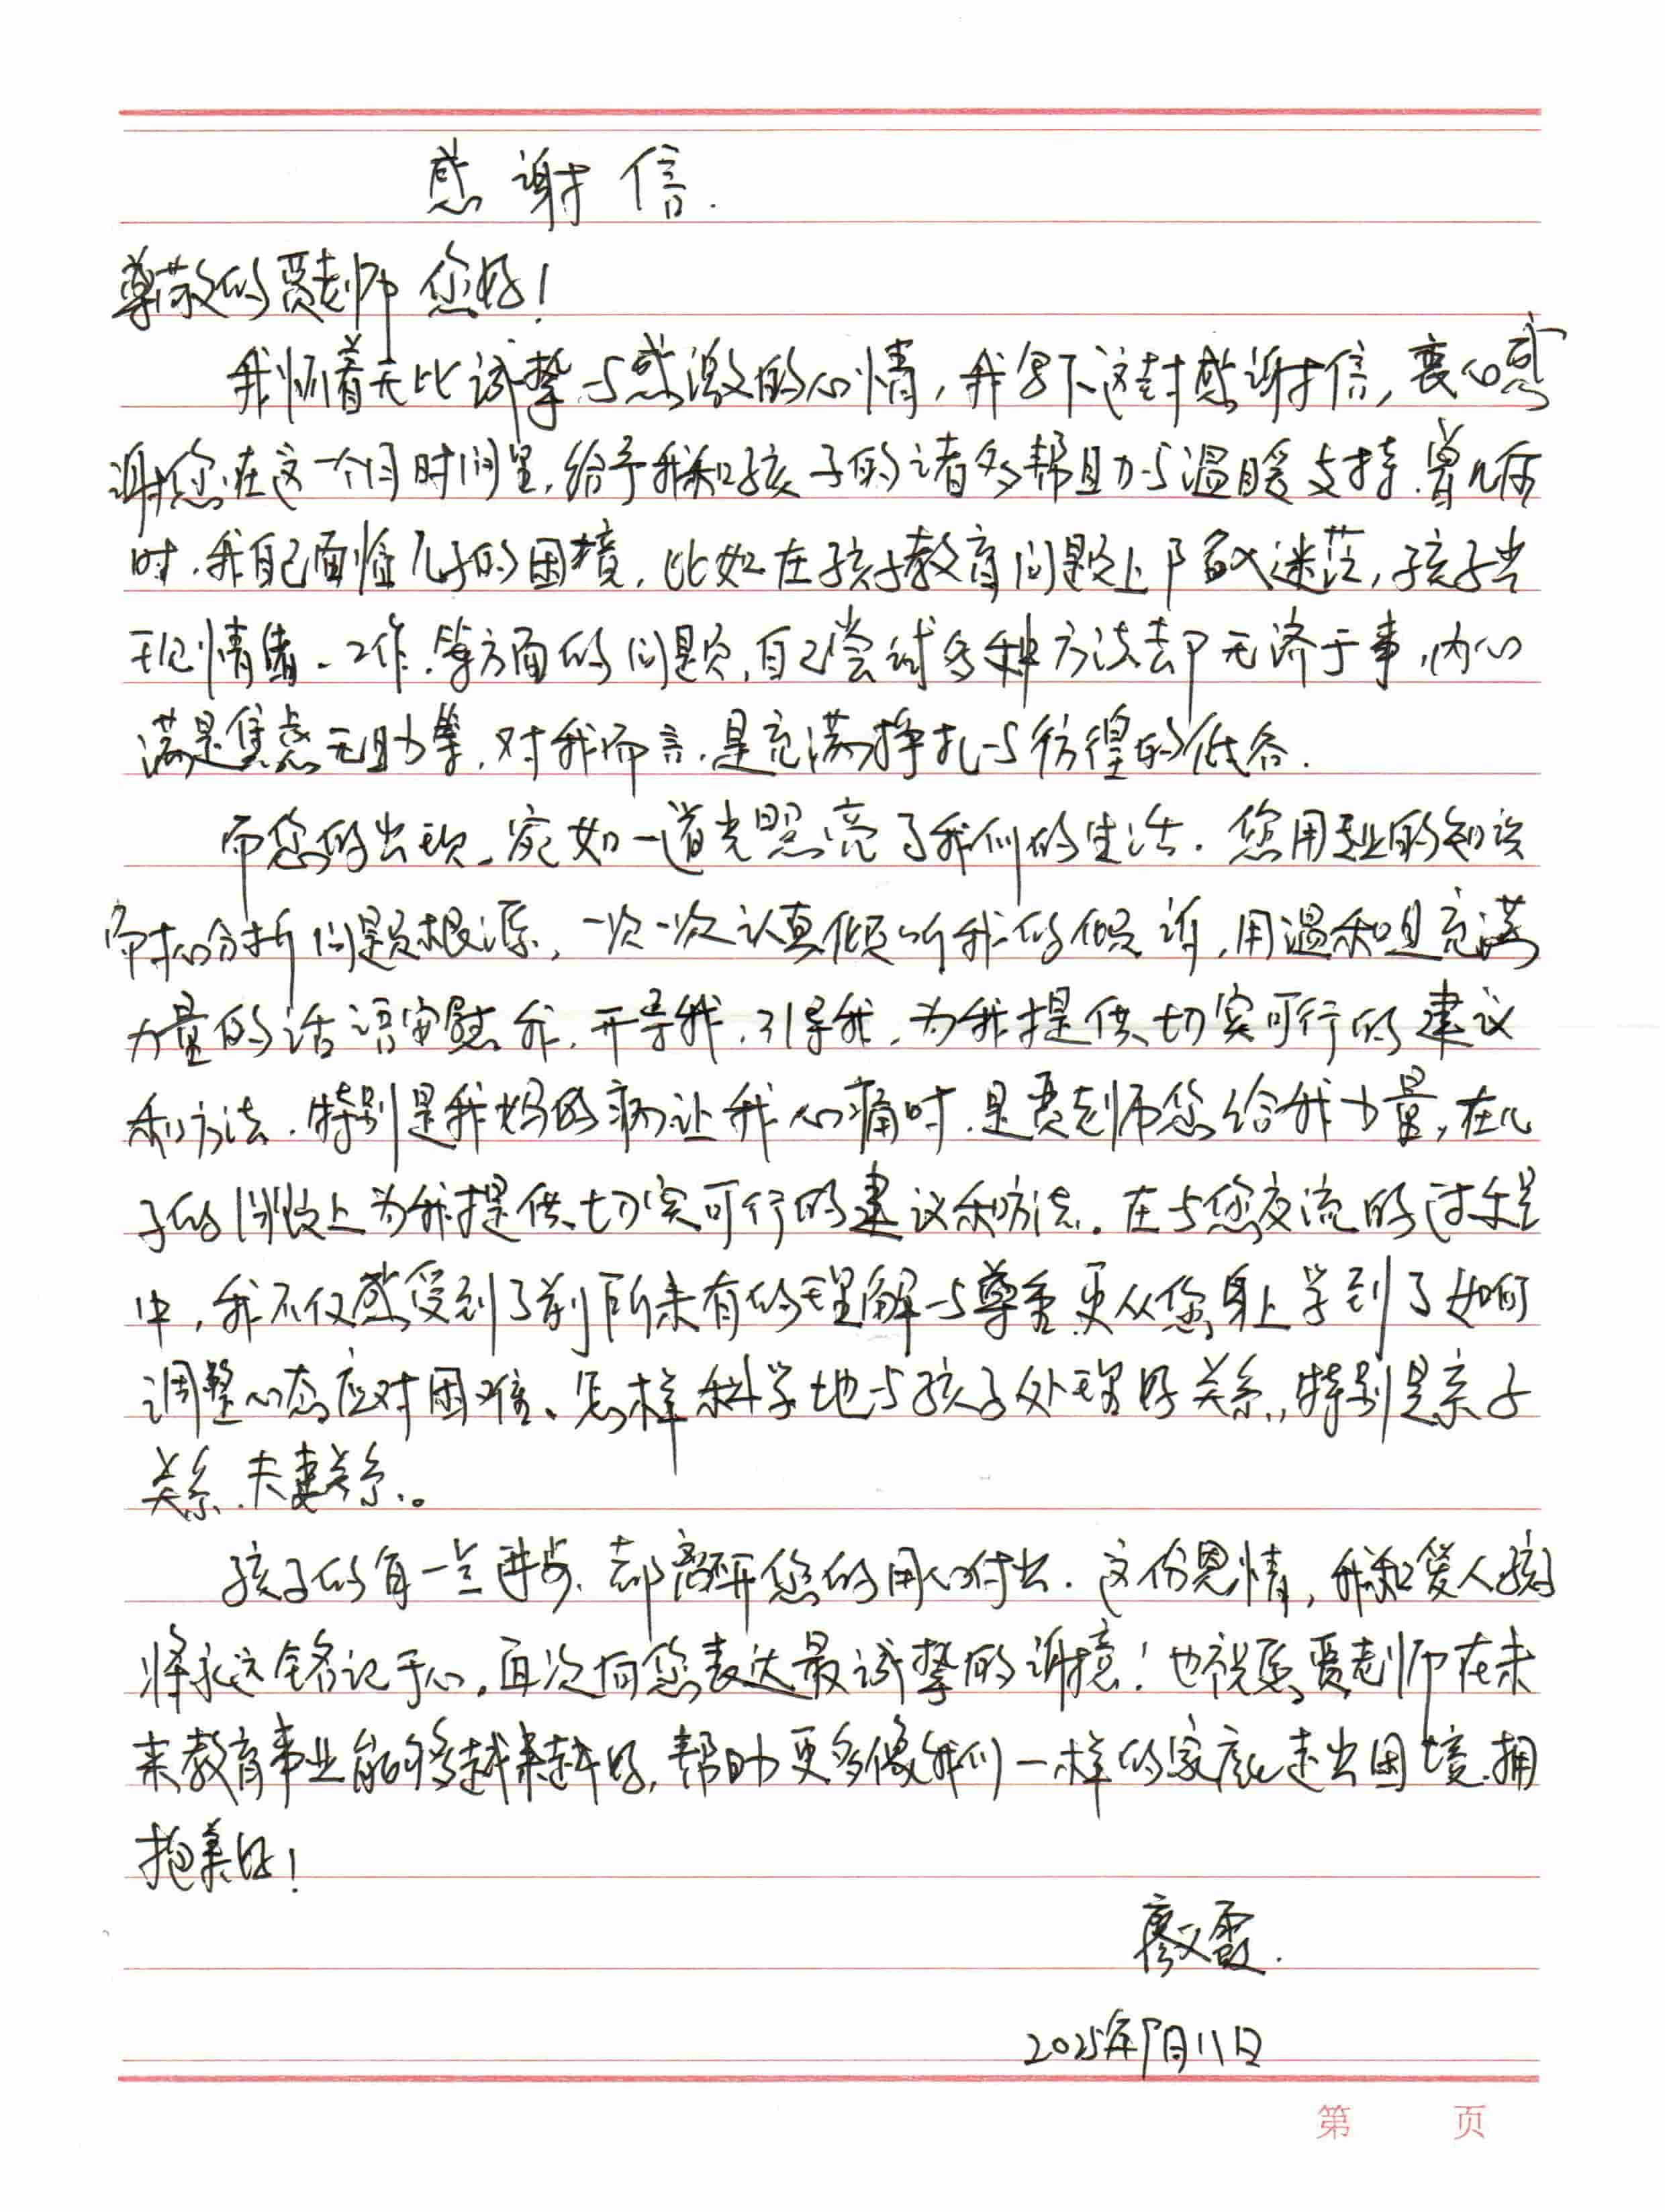 感谢信.
尊敬的贾老师 您好!
我怀着无比诚挚与感激的心情,我写下这封感谢信,衷心感
谢您在这一个月时间里,给予我和孩子的诸多帮助与温暖支持.曾几何
时,我自己面临儿子的困境,比如在孩子教育问题上陷入迷茫,孩子出
现情绪、工作.等方面的问题,自己尝试多种方法却无济于事,内心
满是焦虑无助等,对我而言,是充满挣扎与彷徨的低谷.
而您的出现、宛如一道光照亮了我们的生活.您用专业的知识
耐心分析问题根源,一次一次认真倾听我的倾诉,用温和且充满
力量的话语安慰我,开导我,引导我,为我提供切实可行的建议
和方法.特别是我妈的病让我心痛时.是贾老师您给我力量,在儿
子的问题上为我提供切实可行的建议和方法.在与您交流的过程
中,我不仅感受到了前所未有的理解与尊重更从您身上学到了如何
调整心态应对困难、怎样科学地与孩子处理好关系,特别是亲子
关系.夫妻关系。
孩子的每一点进步、都离不开您的用心付出.这份恩情,我和爱人孩子
将永远铭记于心,再次向您表达最诚挚的谢意!也祝愿贾老师在未
来教育事业能够越来越好,帮助更多像我们一样的家庭走出困境.拥
抱美好!
廖文霞.
2025年9月11日
第 页